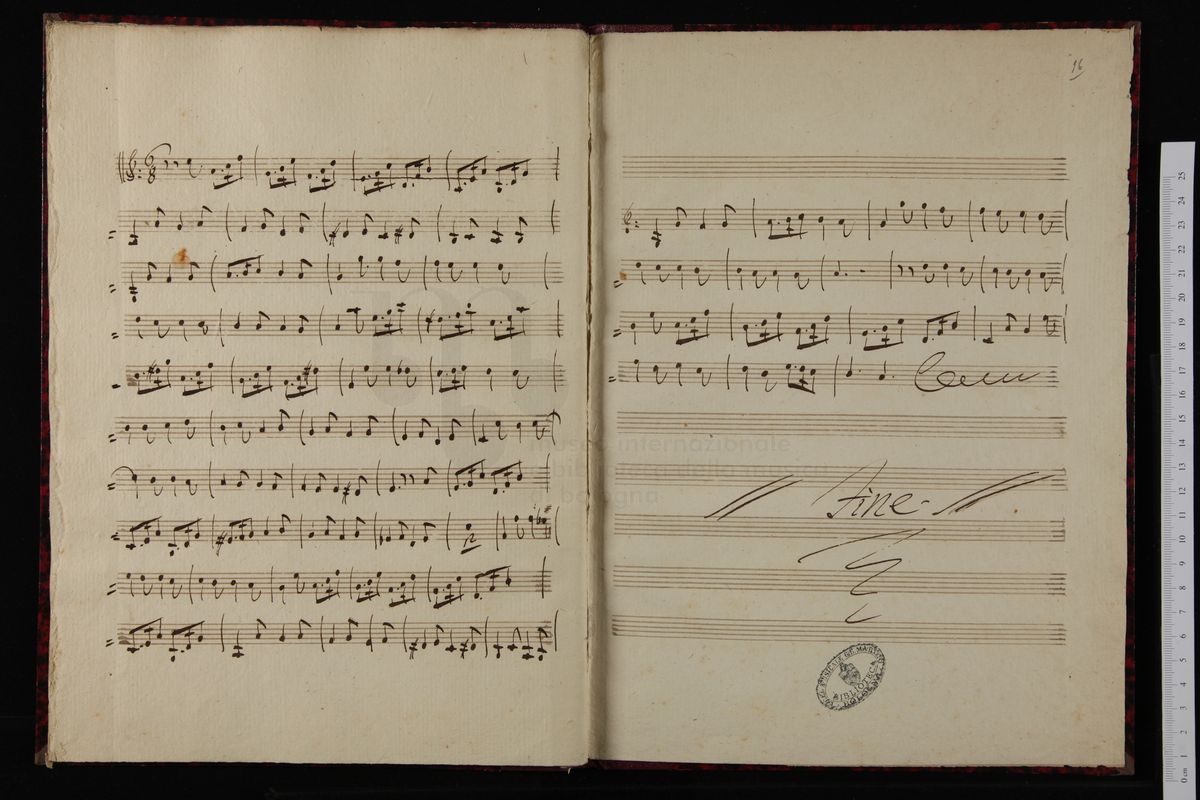 6
8
16
Fine
museo internazionale
e biblioteca della musica
di bologna
BIBLIOTECA
25
24
23
22
21
20
19
18
17
16
15
14
13
12
11
10
9
8
7
6
5
4
3
2
1
0 cm